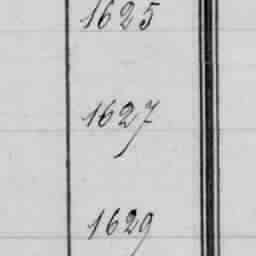 1625
1627
1629